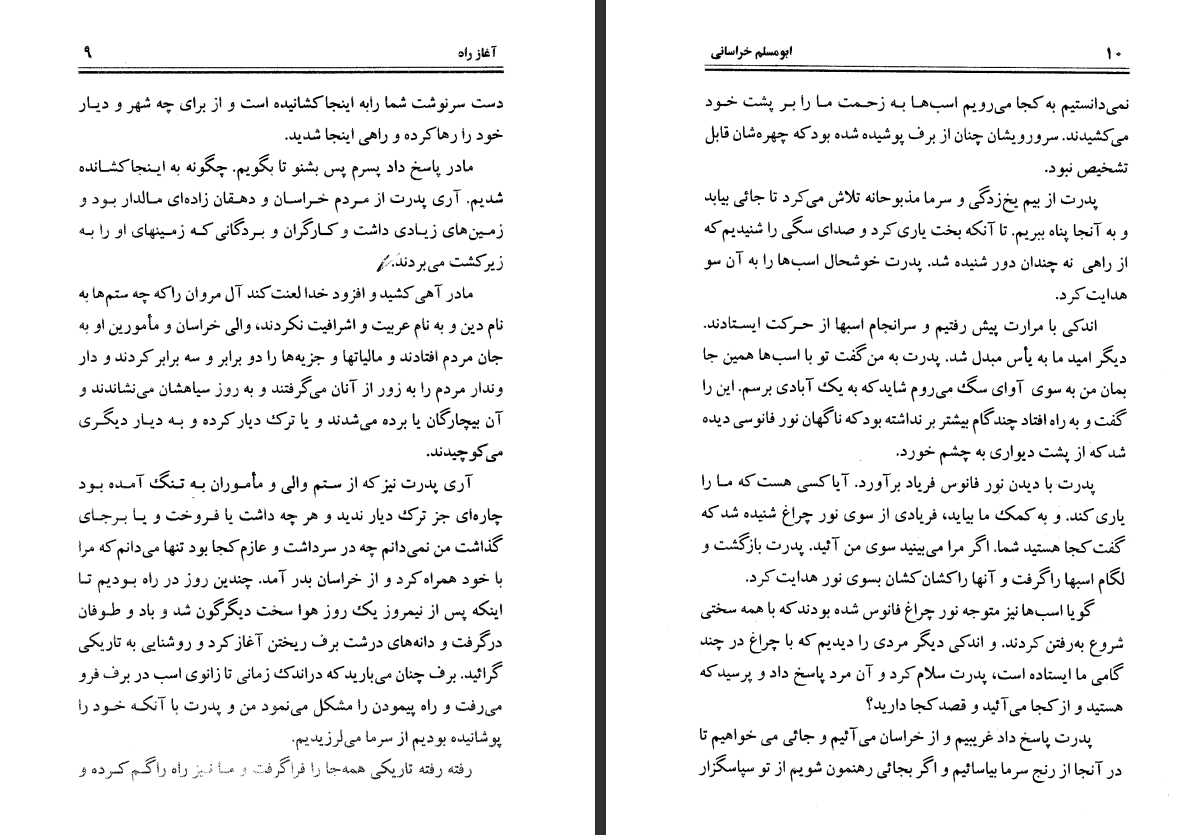 آغاز راه ۹
دست سرنوشت شما رابه اینجا کشانیده است و از برای چه شهر و دیار
خود را رها کرده و راهی اینجا شدید.
مادر پاسخ داد پسرم پس بشنو تا بگویم. چگونه به اینجا کشانده
شدیم. آری پدرت از مردم خراسان و دهقان زاده‌ای مالدار بود و
زمین‌های زیادی داشت و کارگران و بردگانی که زمینهای او را به
زیر کشت می‌بردند.
مادر آهی کشید و افزود خدا لعنت کند آل مروان را که چه ستم‌ها به
نام دین و به نام عربیت و اشرافیت نکردند، والی خراسان و مأمورین او به
جان مردم افتادند و مالیاتها و جزیه‌ها را دو برابر و سه برابر کردند و دار
وندار مردم را به زور از آنان می‌گرفتند و به روز سیاهشان می‌نشاندند و
آن بیچارگان یا برده می‌شدند و یا ترک دیار کرده و به دیار دیگری
می‌کوچیدند.
آری پدرت نیز که از ستم والی و مأموران به تنگ آمده بود
چاره‌ای جز ترک دیار ندید و هر چه داشت یا فروخت و یا برجای
گذاشت من نمی‌دانم چه در سرداشت و عازم کجا بود تنها می‌دانم که مرا
با خود همراه کرد و از خراسان بدر آمد. چندین روز در راه بودیم تا
اینکه پس از نیمروز یک روز هوا سخت دیگرگون شد و باد و طوفان
درگرفت و دانه‌های درشت برف ریختن آغاز کرد و روشنایی به تاریکی
گرائید. برف چنان می‌بارید که دراندک زمانی تا زانوی اسب در برف فرو
می‌رفت و راه پیمودن را مشکل می‌نمود من و پدرت با آنکه خود را
پوشانیده بودیم از سرما می‌لرزیدیم.
رفته رفته تاریکی همه‌جا را فراگرفت و ما نیز راه را گم کرده و
۱۰ ابومسلم خراسانی
نمی‌دانستیم به کجا می‌رویم اسب‌ها به زحمت ما را بر پشت خود
می‌کشیدند. سرورویشان چنان از برف پوشیده شده بود که چهره‌شان قابل
تشخیص نبود.
پدرت از بیم یخ‌زدگی و سرما مذبوحانه تلاش می‌کرد تا جائی بیابد
و به آنجا پناه ببریم. تا آنکه بخت یاری کرد و صدای سگی را شنیدیم که
از راهی نه چندان دور شنیده شد. پدرت خوشحال اسب‌ها را به آن سو
هدایت کرد.
اندکی با مرارت پیش رفتیم و سرانجام اسبها از حرکت ایستادند.
دیگر امید ما به یأس مبدل شد. پدرت به من گفت تو با اسب‌ها همین جا
بمان من به سوی آوای سگ می‌روم شاید که به یک آبادی برسم. این را
گفت و به راه افتاد چندگام بیشتر بر نداشته بود که ناگهان نور فانوسی دیده
شد که از پشت دیواری به چشم خورد.
پدرت با دیدن نور فانوس فریاد برآورد. آیا کسی هست که ما را
یاری کند. و به کمک ما بیاید، فریادی از سوی نور چراغ شنیده شد که
گفت کجا هستید شما. اگر مرا می‌بینید سوی من آئید. پدرت بازگشت و
لگام اسبها را گرفت و آنها را کشان کشان بسوی نور هدایت کرد.
گویا اسب‌ها نیز متوجه نور چراغ فانوس شده بودند که با همه سختی
شروع به‌رفتن کردند. و اندکی دیگر مردی را دیدیم که با چراغ در چند
گامی ما ایستاده است، پدرت سلام کرد و آن مرد پاسخ داد و پرسید که
هستید و از کجا می‌آئید و قصد کجا دارید؟
پدرت پاسخ داد غریبیم و از خراسان می‌آئیم و جائی می خواهیم تا
در آنجا از رنج سرما بیاسائیم و اگر بجائی رهنمون شویم از تو سپاسگزار